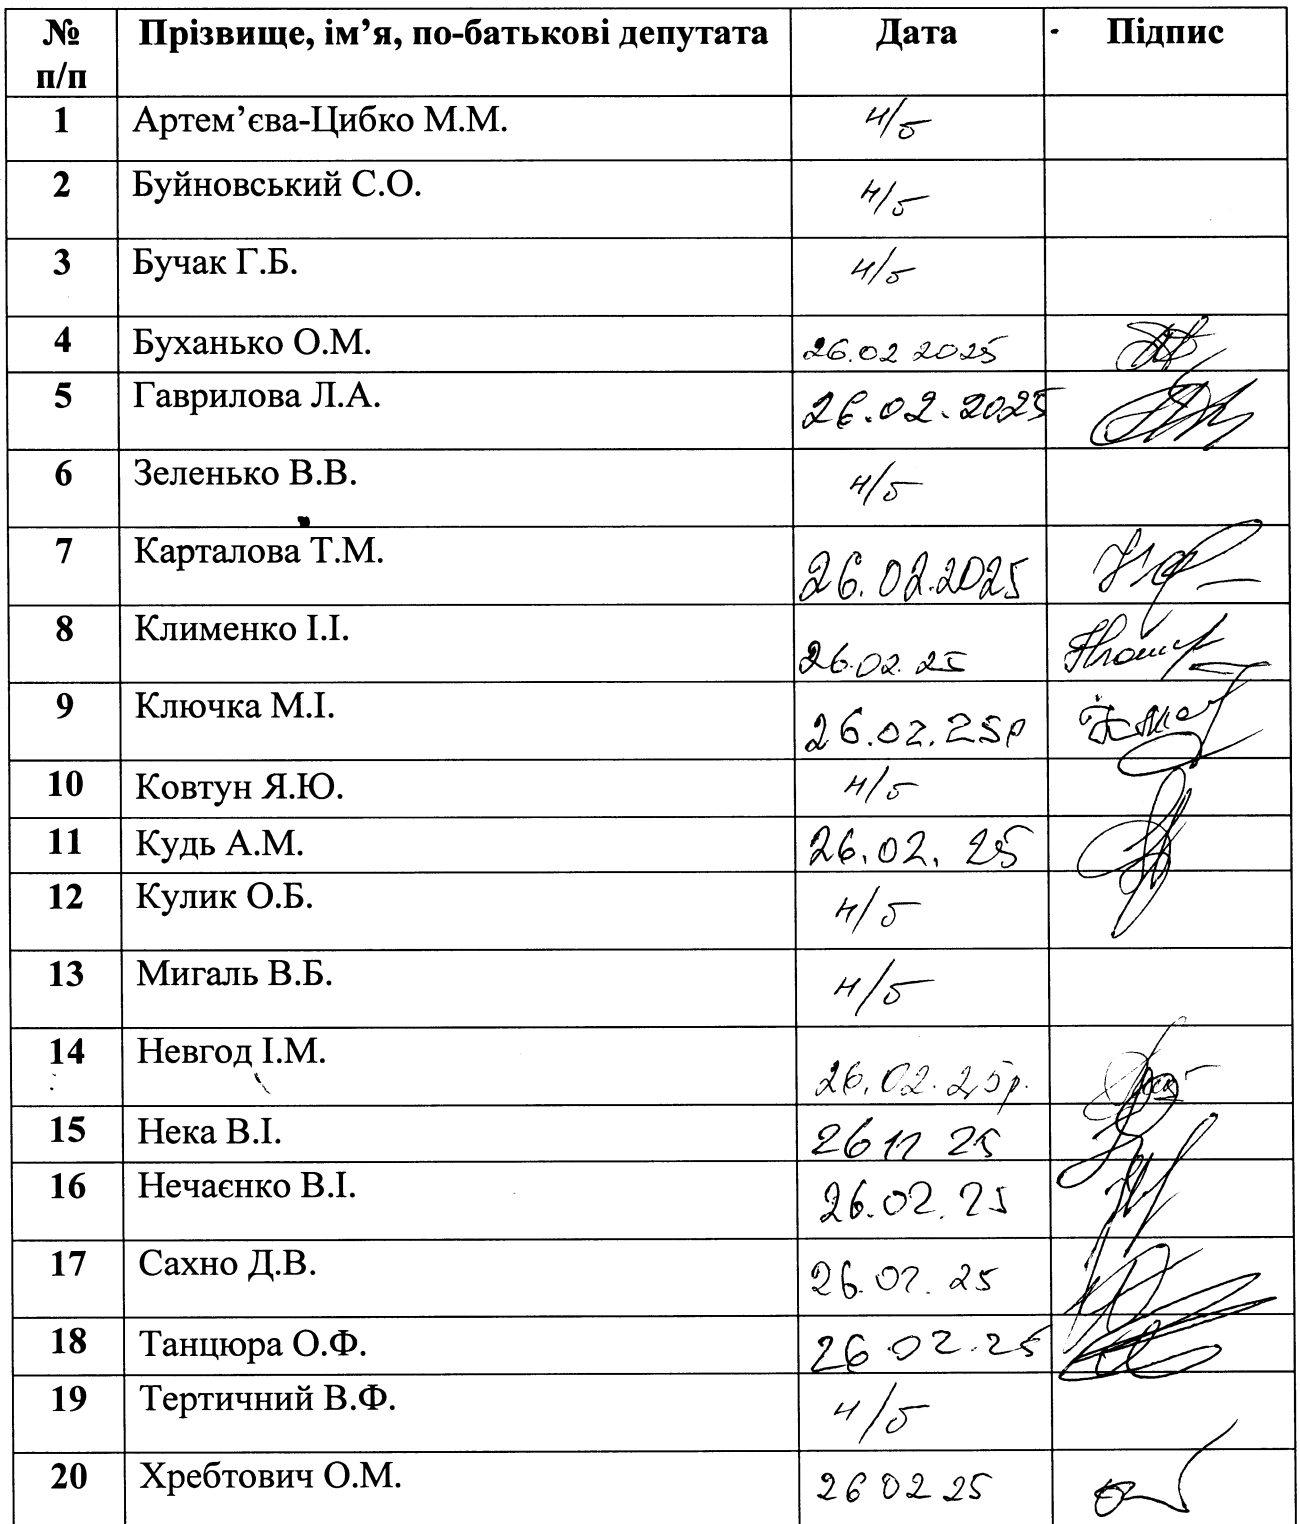 № п/п Прізвище, ім’я, по-батькові депутата Дата Підпис
1 Артем’єва-Цибко М.М. н/б
2 Буйновський С.О. н/б
3 Бучак Г.Б. н/б
4 Буханько О.М. 26.02 2025
5 Гаврилова Л.А. 26.02.2025
6 Зеленько В.В. н/б
7 Карталова Т.М. 26.02.2025
8 Клименко І.І. 26.02.25
9 Ключка М.І. 26.02.25р
10 Ковтун Я.Ю. н/б
11 Кудь А.М. 26.02.25
12 Кулик О.Б. н/б
13 Мигаль В.Б. н/б
14 Невгод І.М. 26.02.25р.
15 Нека В.І. 26 25
16 Нечаєнко В.І. 26.02.25
17 Сахно Д.В. 26.02.25
18 Танцюра О.Ф. 26.02.25
19 Тертичний В.Ф. н/б
20 Хребтович О.М. 26 02 25